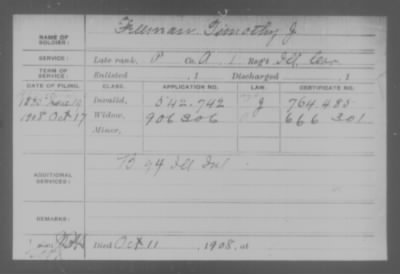 NAME OF SOLDIER: Freeman, Timothy J.
SERVICE: Late rank, P Co. A, 1, Reg't Ill. Cav.
TERM OF SERVICE: Enlisted , 1 Discharged , 1
DATE OF FILING. CLASS. APPLICATION NO. LAW. CERTIFICATE NO.
1885 June 19 Invalid, 542.742 J 764.485
1908 Oct 17 Widow, 906306 666301
Minor,
ADDITIONAL SERVICES: B 94 Ill Inf
REMARKS:
Died Oct 11, 1908, at